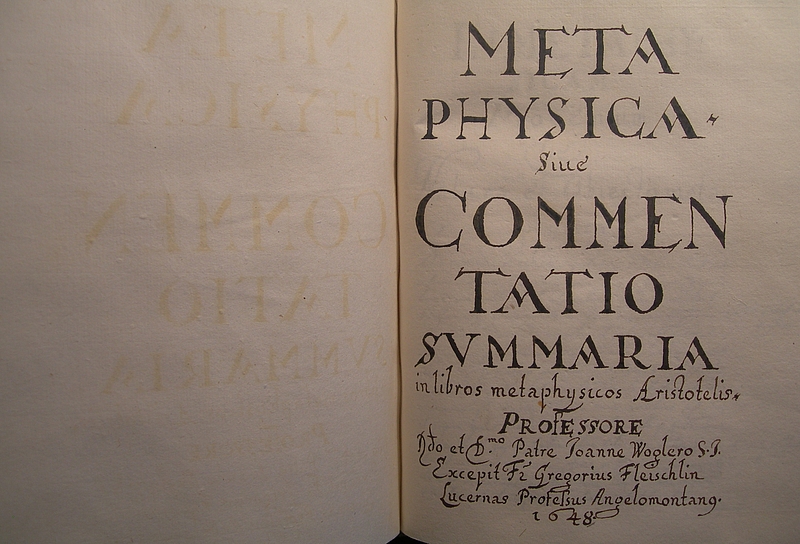 META
PHYSICA.
Siue
COMMEN
TATIO
SVMMARIA
in libros metaphysicos Aristotelis.
PROFESSORE
et Patre Ioanne Woglero S.I.
Excepit Fr Gregorius Fleischlin
Lucernas Professus Angelomontanq.
1648